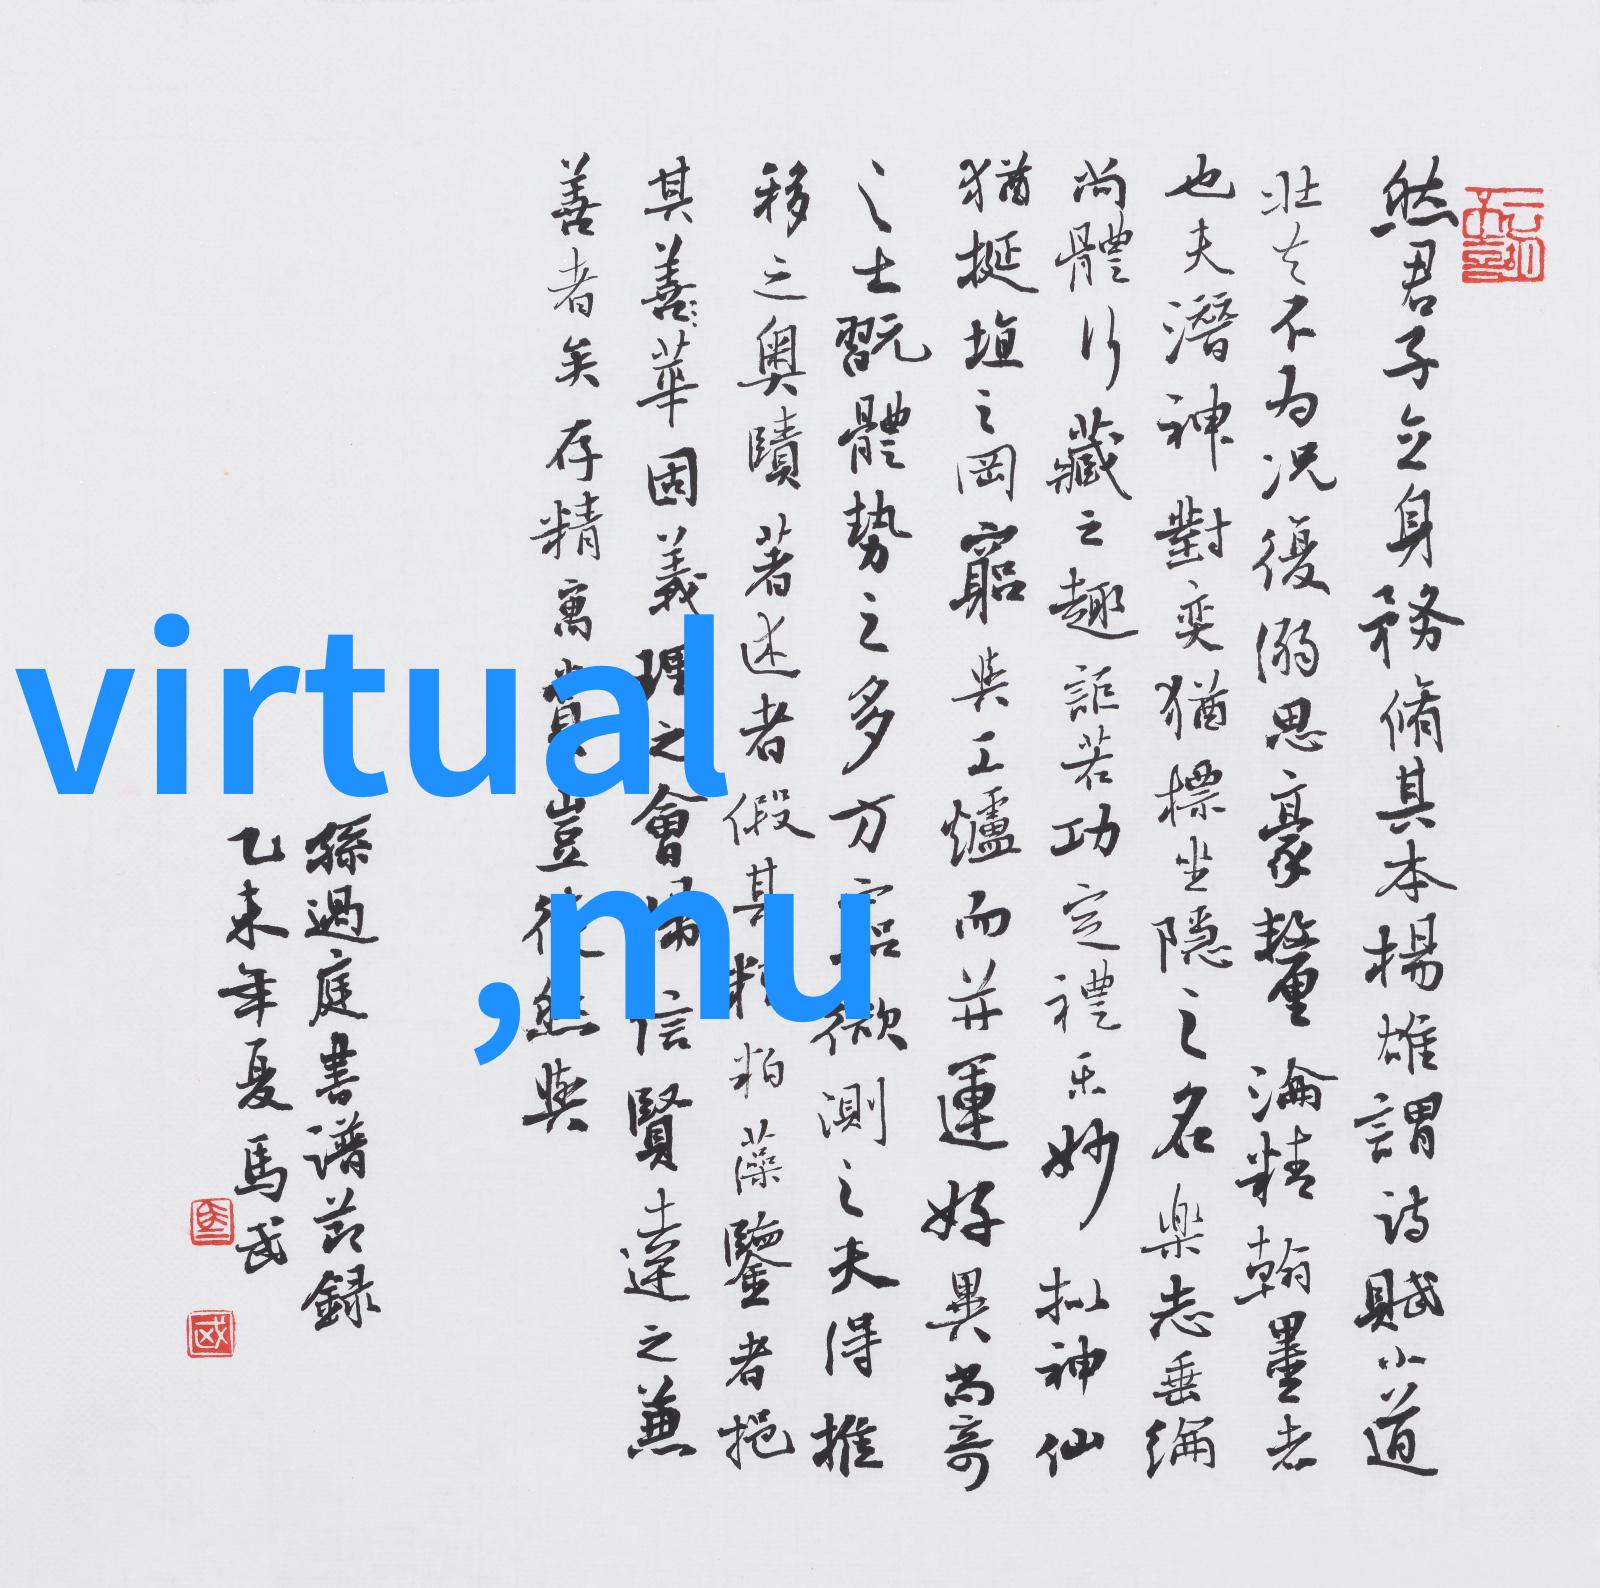 然君子立身務脩其本楊雄謂詩賦小道
壯夫不為况復溺思豪釐瀹精翰墨者
也夫潛神對奕猶標坐隱之名樂志垂綸
尚體行藏之趣詎若功定禮樂妙拟神仙
猶挻埴之罔窮與工爐而并運好異尚奇
之士翫體勢之多方窮微測之夫得推
移之奧賾著述者假其糟粕藻鑒者挹
其善華固義理之會歸信賢達之兼
善者矣存精寓賞豈徒然與
孫過庭書譜節録
乙未年夏馬武
virtual
,mu